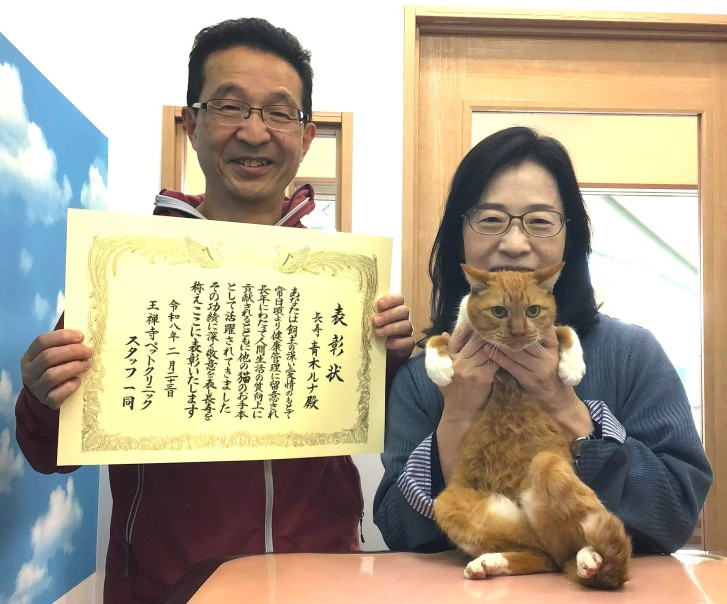 表彰状
長寿 青木ルナ殿
あなたは飼主の深い愛情のもとで
常日頃より健康管理に留意され
長年にわたって人間生活の質向上に
貢献されるとともに他の猫のお手本
として活躍されてきました
その功績に深く敬意を表し長寿を
称えここに表彰いたします
令和八年 二月二十三日
王禅寺ペットクリニック
スタッフ一同